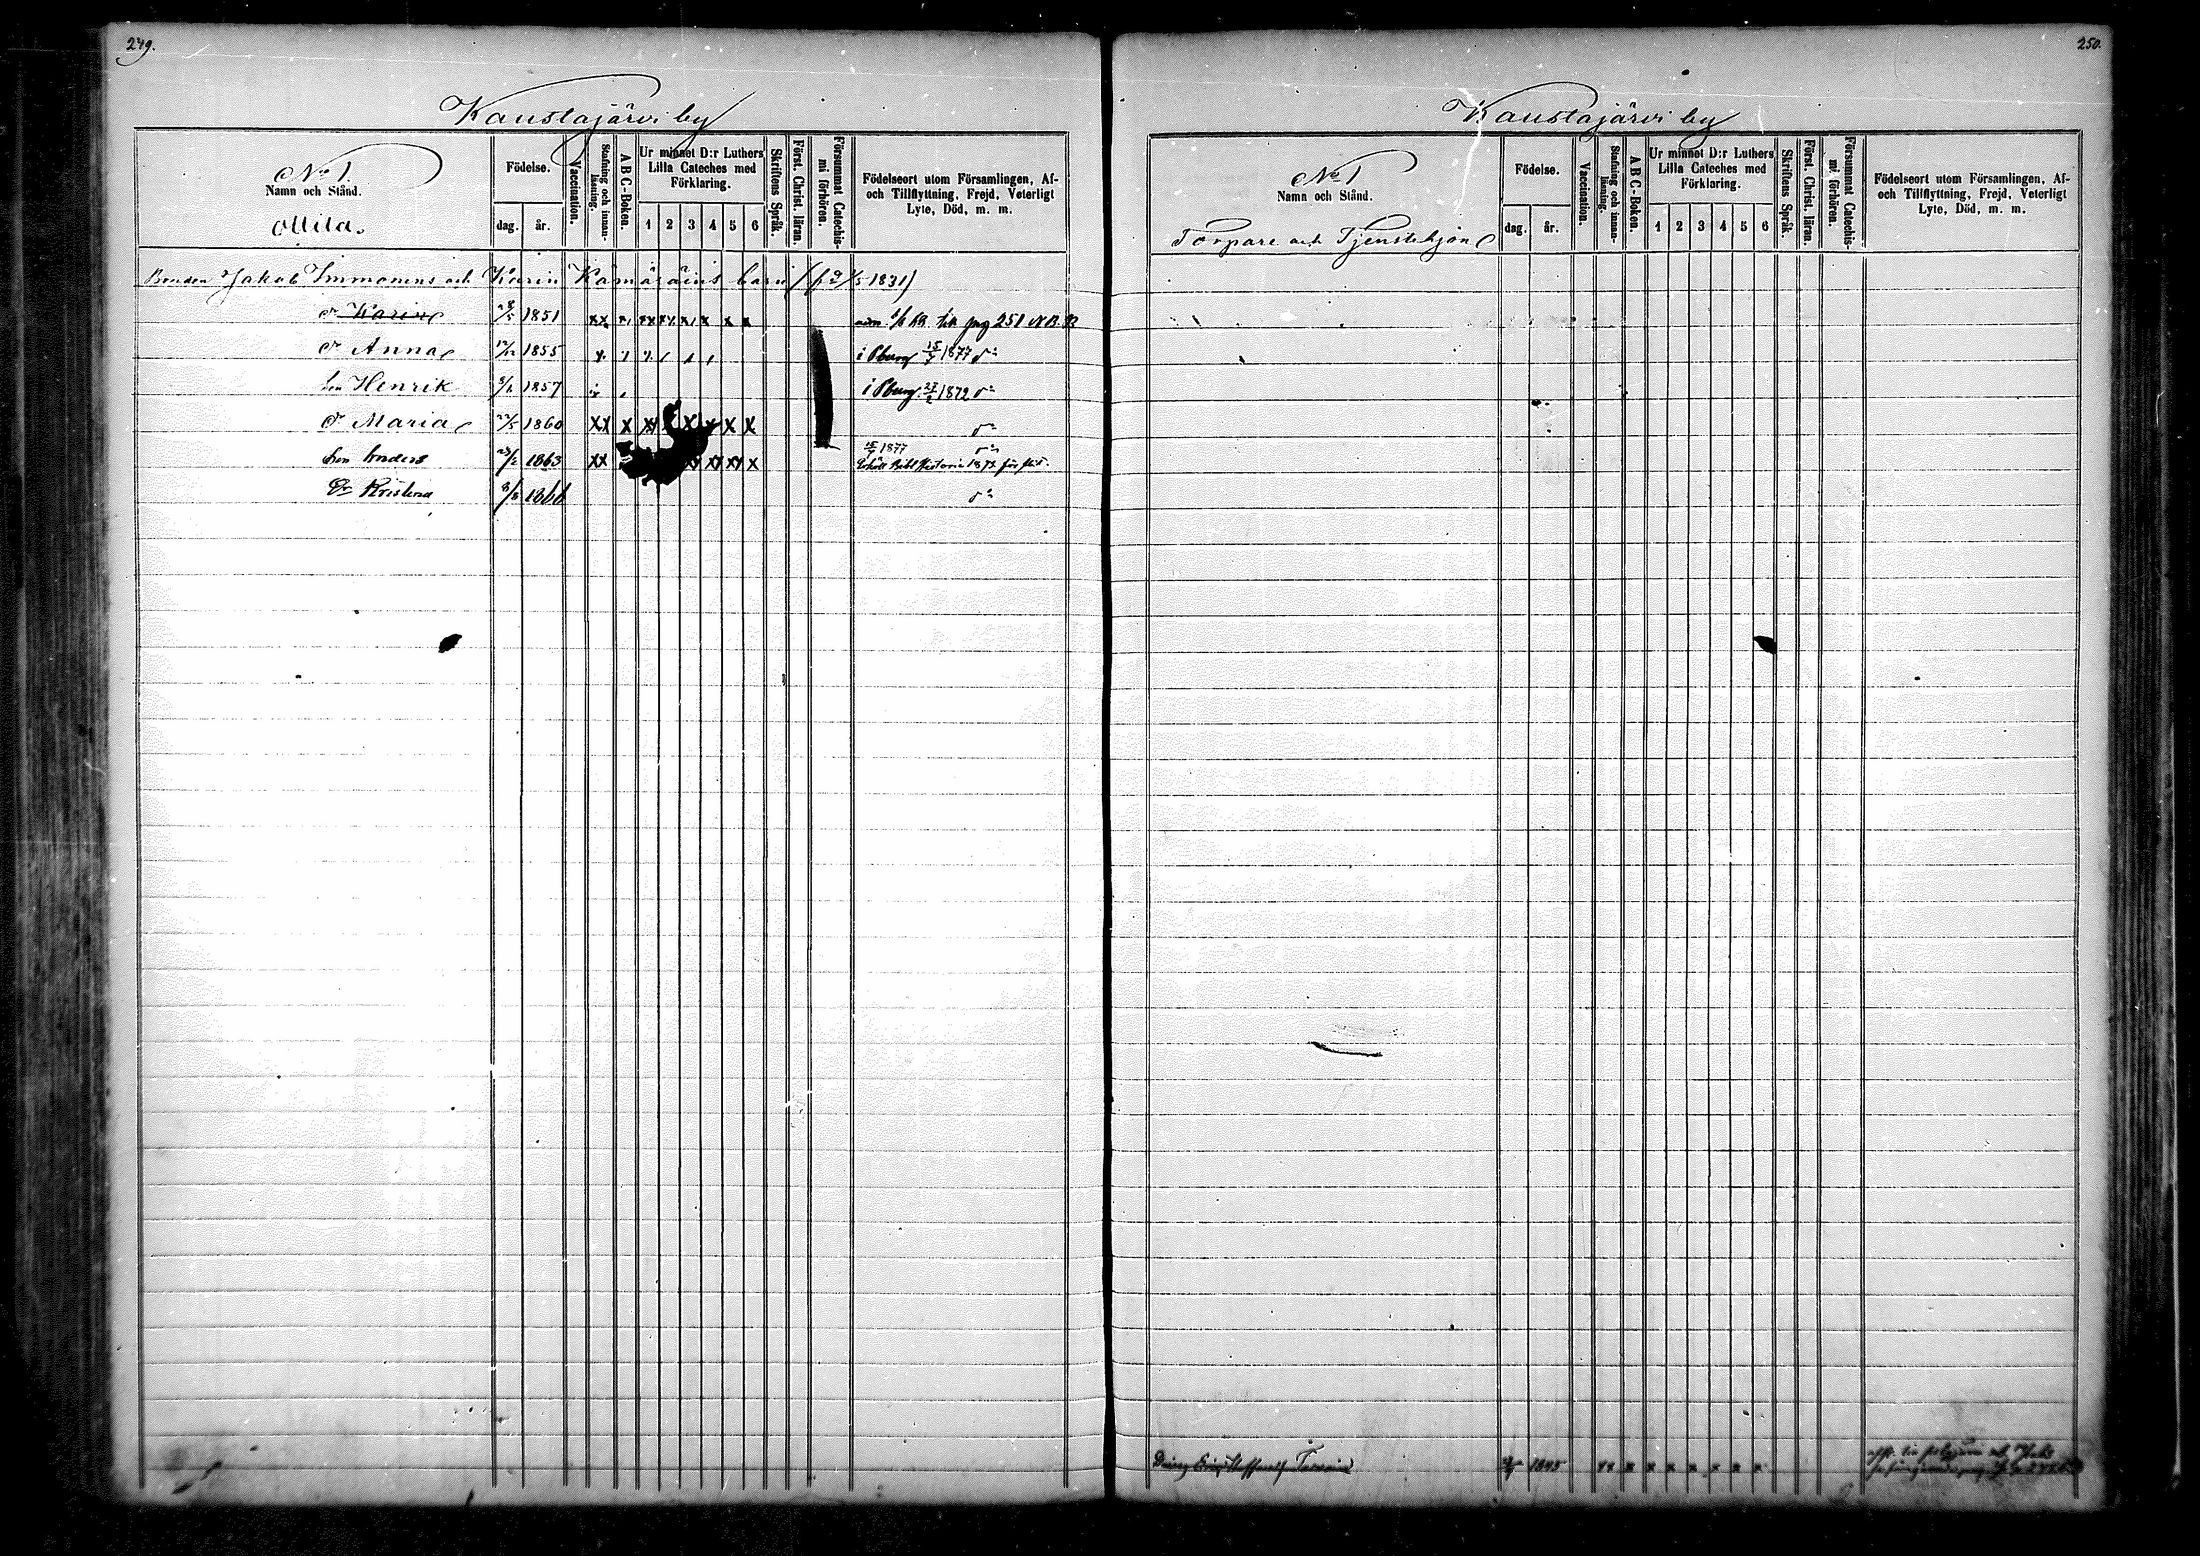 249.
Kaustajärvi by
No 1.
Namn och Stånd.
Attila.
Födelse.
dag.
år.
Vaccination.
Stafning och innan-läsning.
A B C-Boken.
Ur minnet D:r Luthers
Lilla Cateches med
Förklaring.
1 2 3 4 5 6
Skriftens Språk.
Först. Christ. läran.
Försummat Catechis-
mi förhören.
Födelseort utom Församlingen, Af-
och Tillflyttning, Frejd, Veterligt
Lyte, Död, m. m.
Bonden Jakob Immonens och Karin Kämäräins barn
1831)
Dr Karin 1851 till pag 251
Dr Anna 17/12 1855 i Pburg 15/7 1877
Son Henrik 1857 i Pburg 1872
Dr Maria 22/5 1860
15/7 1877
Son Anders 1863 Bibl Historia 1873 för flit.
Dr Kristina 8/8 1866
250.
Kaustajärvi by
No 1
Namn och Stånd.
Torpare och Tjenstehjon
Födelse.
dag.
år.
Vaccination.
Stafning och innan-läsning.
A B C-Boken.
Ur minnet D:r Luthers
Lilla Cateches med
Förklaring.
1 2 3 4 5 6
Skriftens Språk.
Först. Christ. läran.
Försummat Catechis-
mi förhören.
Födelseort utom Församlingen, Af-
och Tillflyttning, Frejd, Veterligt
Lyte, Död, m. m.
Dräng 1845